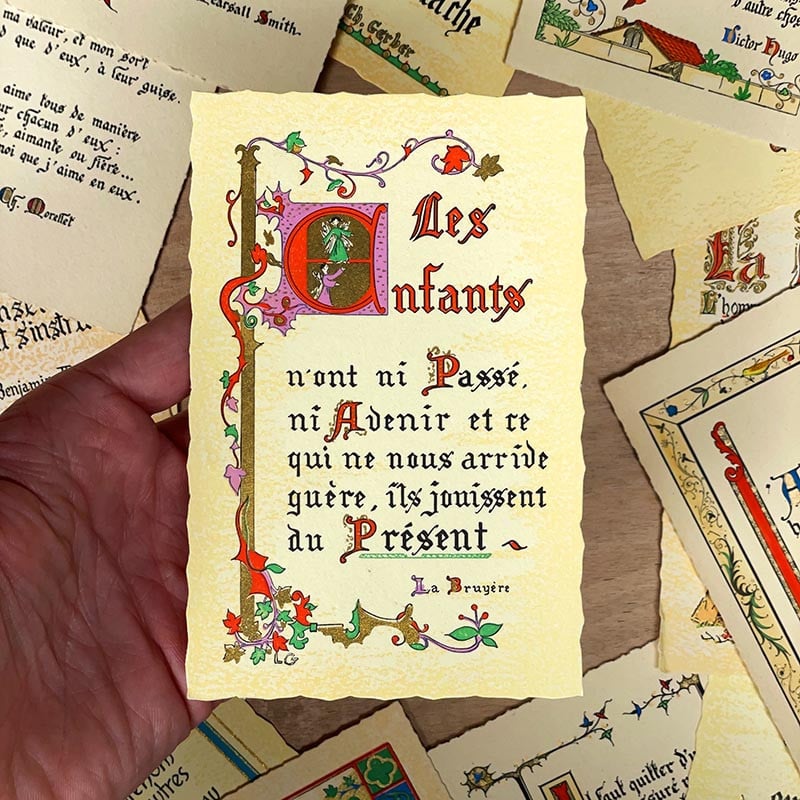 Les
Enfants
n'ont ni Passé,
ni Avenir et ce
qui ne nous arrive
guère, ils jouissent
du Présent
La Bruyère
LG
Pearsall Smith.
ma valeur, et mon sort
que d'eux, à leur guise.
aime tous de manière
chacun d'eux :
aimante ou fière...
moi que j'aime en eux.
Ch. Gerber
d'autre chos
Victor Hugo
La
L'hom
s'instr
Benjamin
utres
faut quitter d'u